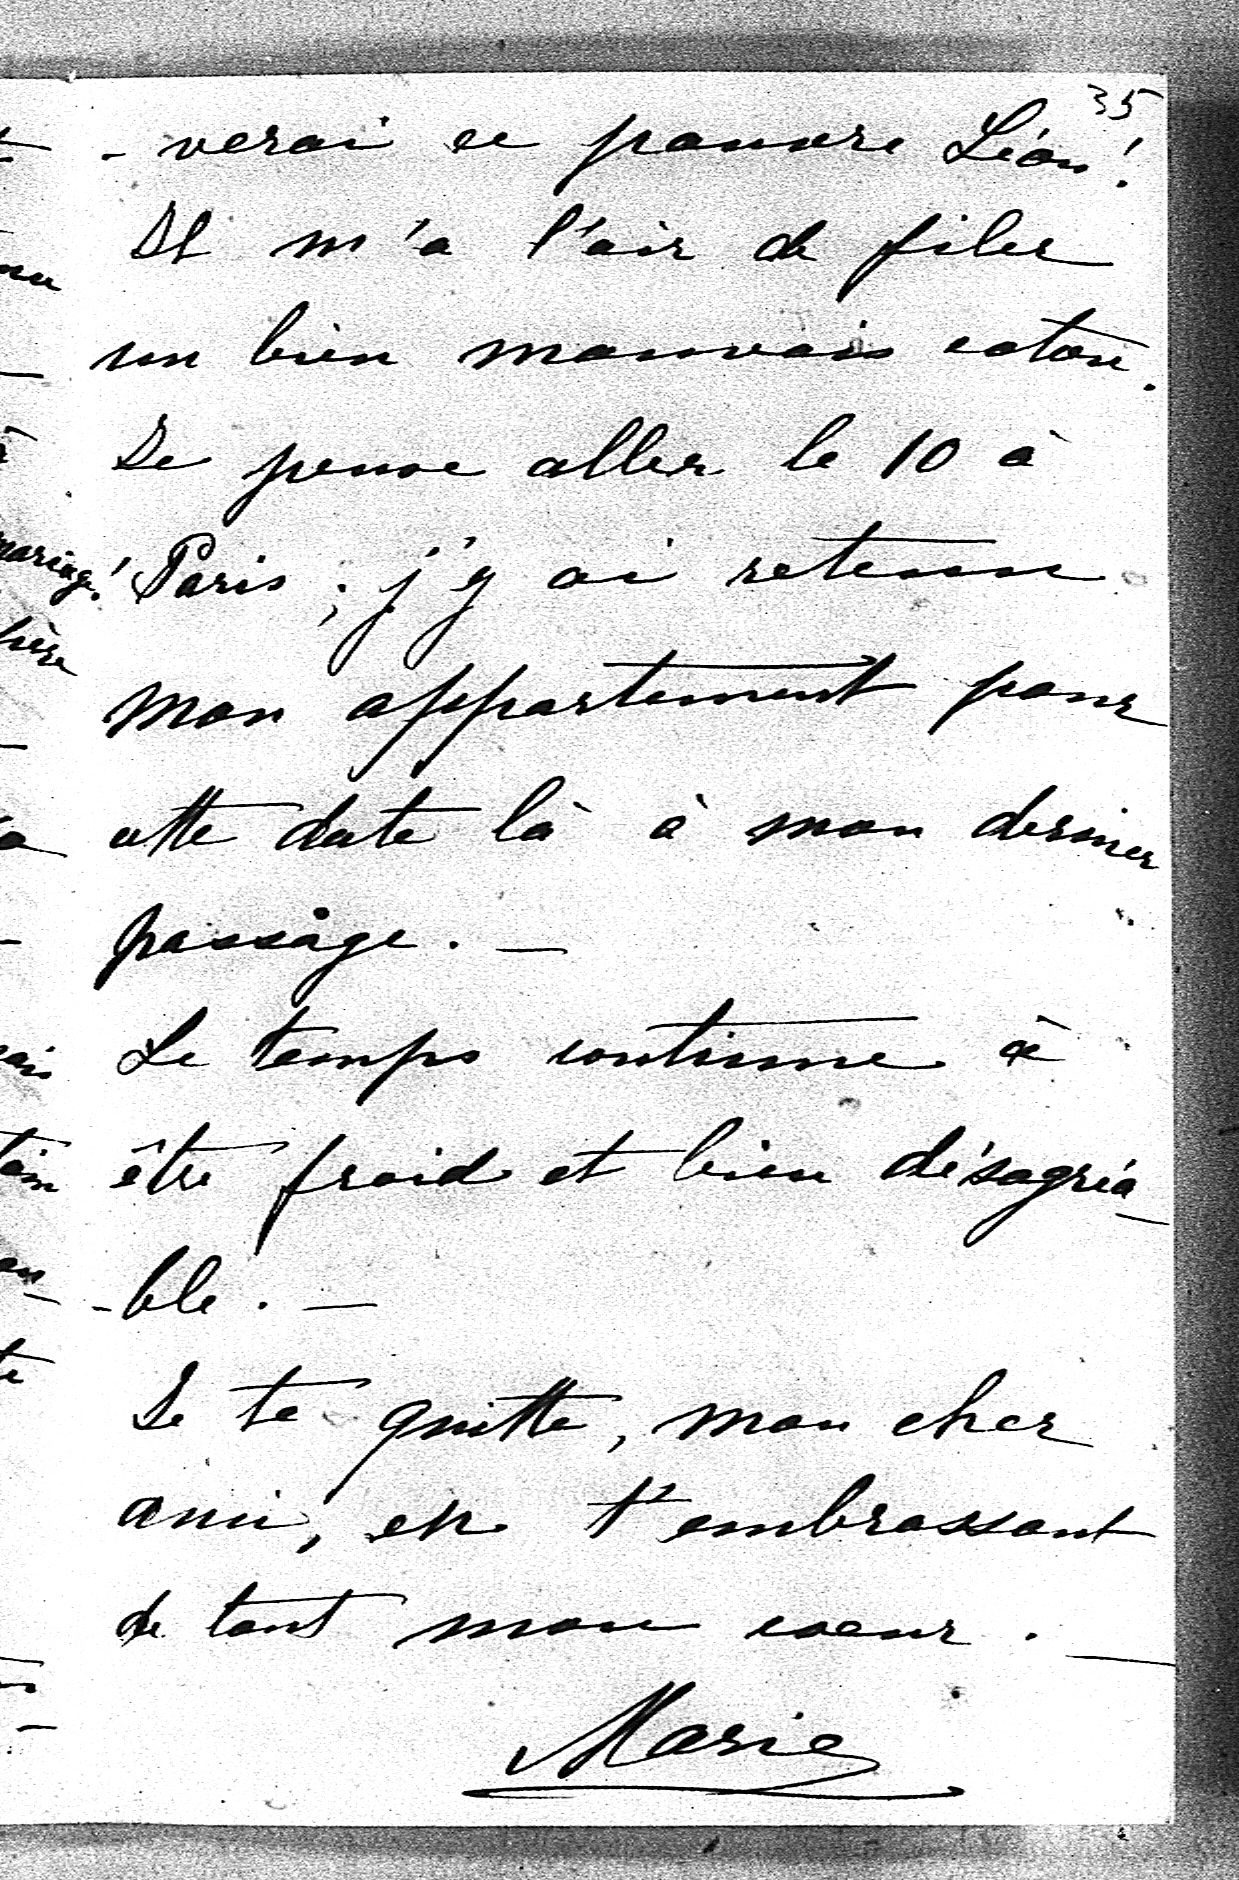 35
- verai ce pauvre Léon!
Il m'a l'air de filer
un bien mauvais coton.
Je pense aller le 10 à
Paris ; j'y ai retenu
mon appartement pour
cette date là à mon dernier
passage. —
Le temps continue à
être froid et bien désagréa-
-ble. —
Je te quitte, mon cher
ami, en t'embrassant
de tout mon coeur. —
Marie
mariage!